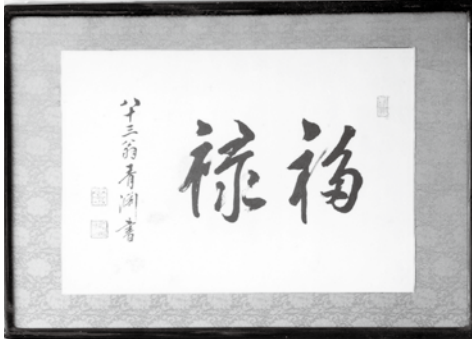 福禄
八十三翁青淵書